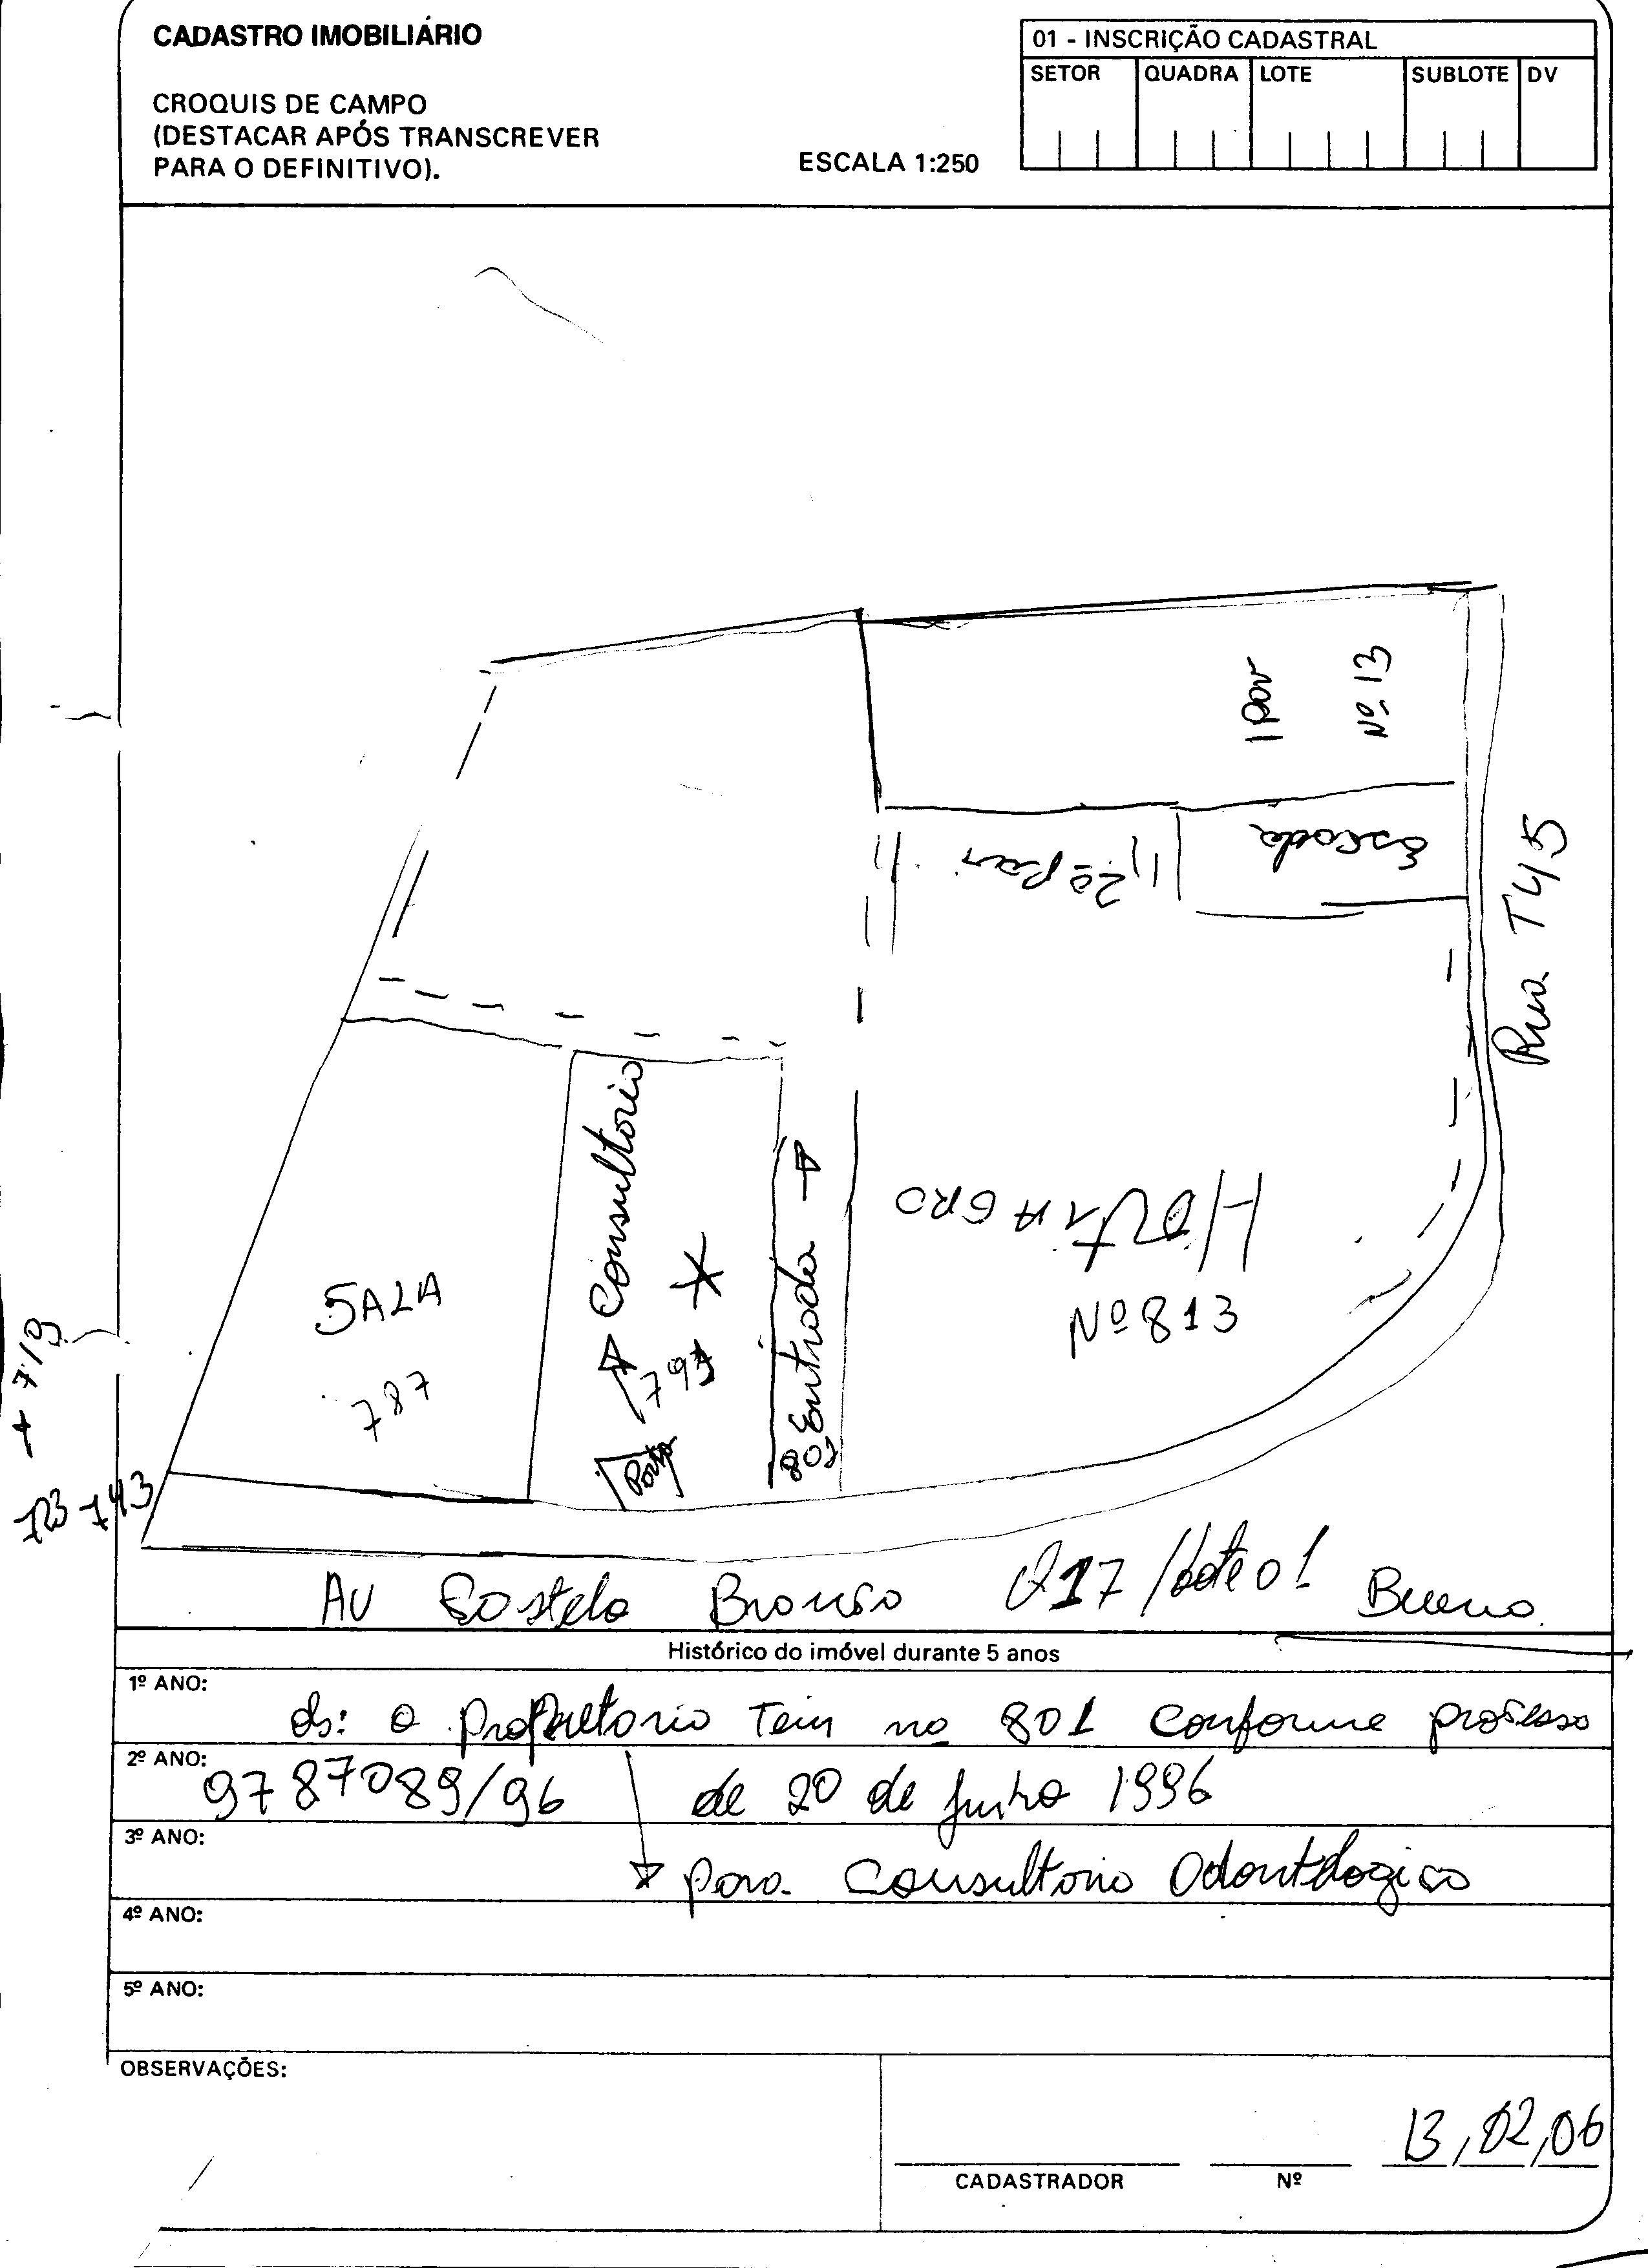 CADASTRO IMOBILIÁRIO
CROQUIS DE CAMPO
(DESTACAR APÓS TRANSCREVER
PARA O DEFINITIVO).
ESCALA 1:250
01 - INSCRIÇÃO CADASTRAL
SETOR QUADRA LOTE SUBLOTE DV
1 pav
Nº 13
Escada
2º pav
Rua T45
Consultorio
Entrada
HORTIAGRO
Nº 813
SALA
787
797
801
Porta
+ 719
723 743
AV Castelo Branco Q17/Lote 01 Bueno
Histórico do imóvel durante 5 anos
1º ANO:
Os: o Proprietario Tem no 801 conforme processo
2º ANO:
9787089/96 de 20 de Junho 1996
3º ANO:
para Consultorio Odontologico
4º ANO:
5º ANO:
OBSERVAÇÕES:
13,02,06
CADASTRADOR Nº